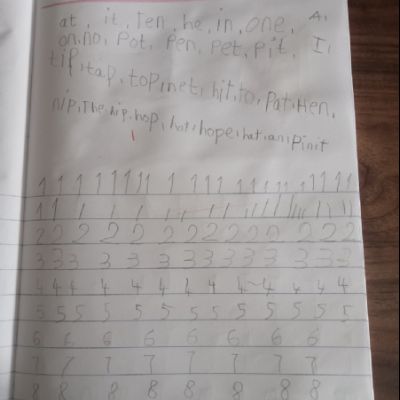 at, it, Ten, he, in, one, A,
on, no, Pot, Pen, Pet, Pit, I,
tip, tap, top, net, hit, to, Pat, Hen,
nip, The, hip, hop, hat, hope, hat, an, Pinit
1 1 1 1 1 1 1 1 1 1 1 1 1 1 1 1 1 1 1
1 1 1 1 1 1 1 1 1 1 1 1 1 1 1 1 1
2 2 2 2 2 2 2 2 2 2 2 2 2 2
3 3 3 3 3 3 3 3 3 3 3 3 3 3
4 4 4 4 4 4 4 4 4 4 4 4 4
5 5 5 5 5 5 5 5 5 5 5 5 5 5
6 6 6 6 6 6 6 6 6
7 7 7 7 7 7 7 7
8 8 8 8 8 8 8 8